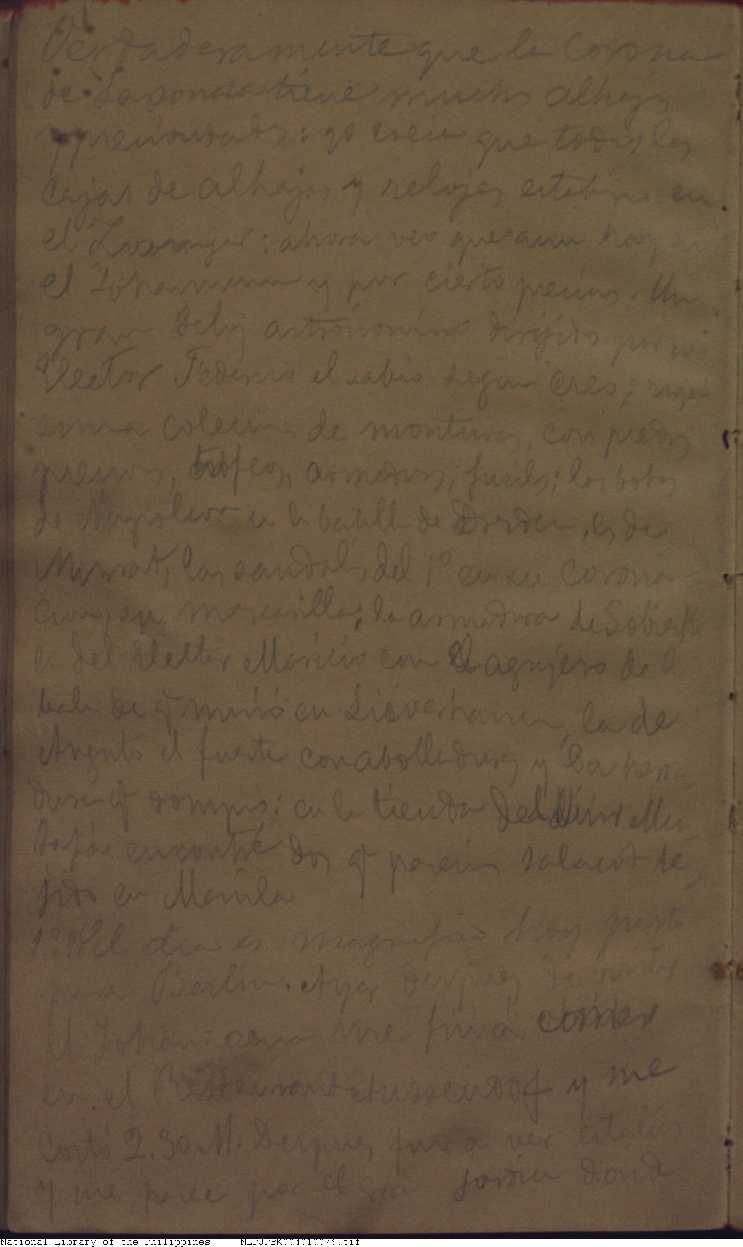 Verdaderamente que la Corona
de Sajonia tiene muchas alhajas
y preciosidades: yo creia que todas las
cajas de alhajas y relojes estaban en
el ahora veo que aun hay en
el Johanneum y por cierto preciosas. Un
gran Reloj astronómico dirigido por un
Elector el sabio segun creo;
una coleccion de monturas, con piedras
preciosas, trofeos, armaduras, fusiles; las botas
de Napoleon en la batalla de Dresden, las de
Murat, las sandalias del 1º en su Corona-
cion, su mascarilla; la armadura de Sobiesk
la del Elector Mauricio con el agujero de la
bala de q murió en la de
Augusto el fuerte con abolladuras y la herra-
dura q rompió; en la tienda del Mus-
tafá encontré dos q parecian salacot te-
jidos en Manila
1º El dia es magnifico hoy parto
para Berlin. Ayer despues de visitar
el Johan-eum me fui á comer
en el Restaurant y me
costó 2.30 M. Despues fui a ver
y me paseé por el gran Jardin donde
National Library of the Philippines